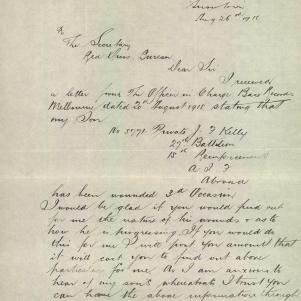 Snowtown
Aug 26th 1918
The Secretary
Red Cross Bureau
Dear Sir
I received
a letter from The Officer in Charge Base Records
Melbourne dated 20th August 1918 stating that
my Son
No 5791 Private J. F Kelly
27th Battalion
15th Reinforcement
A. I F
Abroad
has been wounded 3rd Occasion
I would be glad if you would find out
for me the nature of his wounds & as to
how he is progressing. If you would do
this for me I will post you amount that
it will cost you to find out above
particular for me. As I am anxious to
hear of my sons whereabouts I trust you
can have the above information through